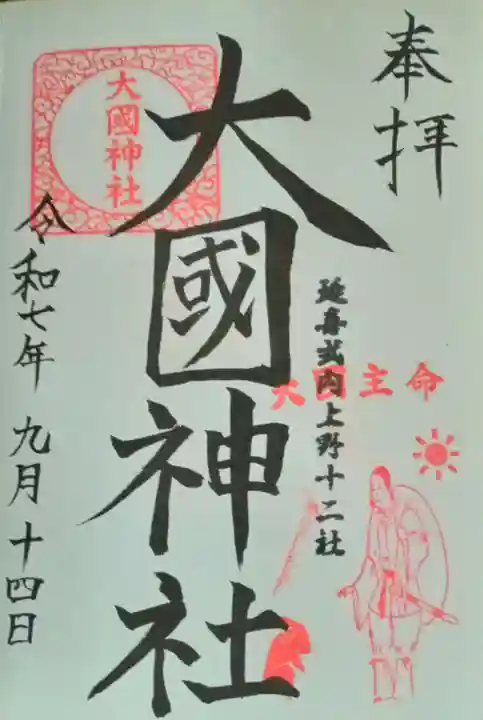 奉拝
大國神社
延喜式内上野十二社
大国主命
大國神社
令和七年 九月十四日